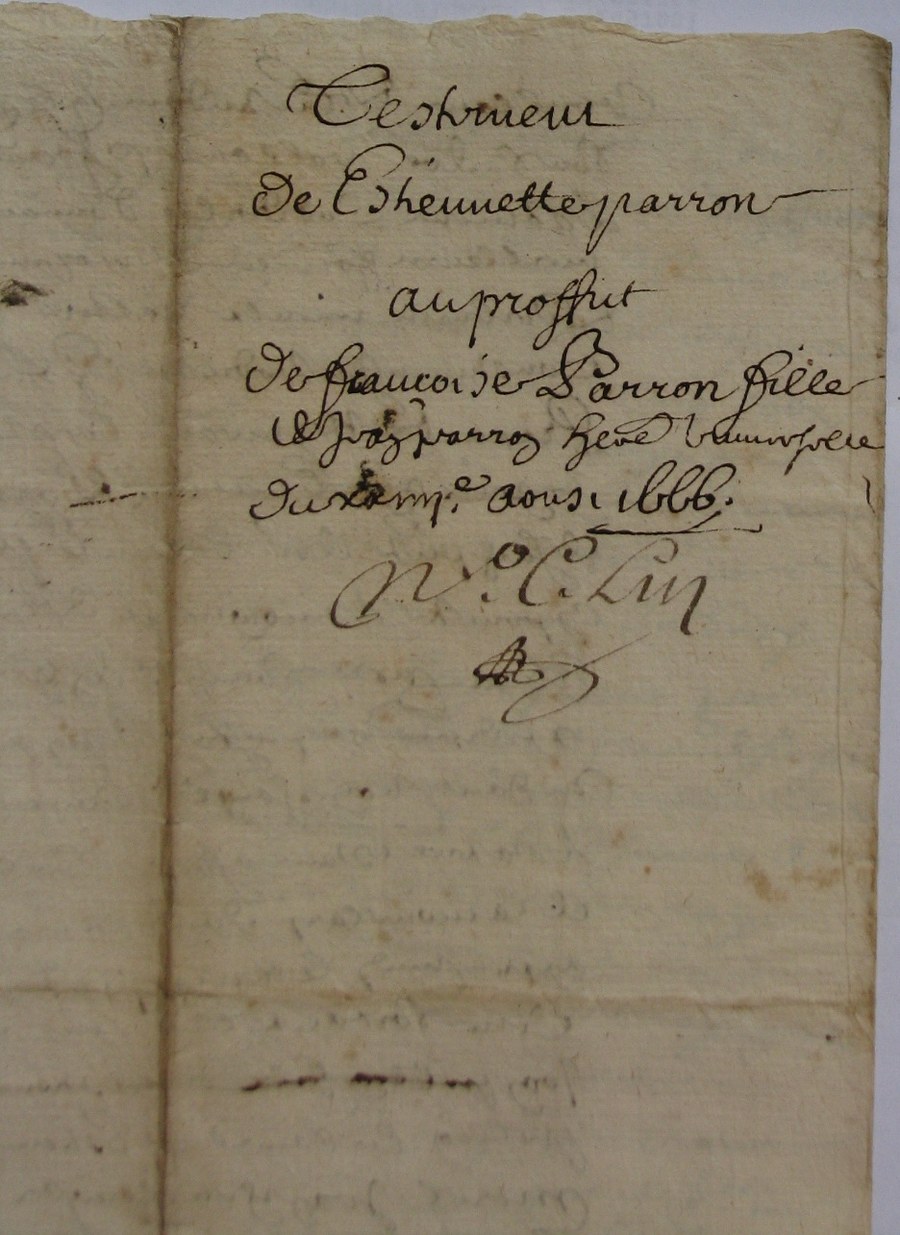 Testament
De Estiennette parron
au proffict
De francoise Parron fille
de Jean parron here universelle
Du aoust 1666.
No. C. Liiij